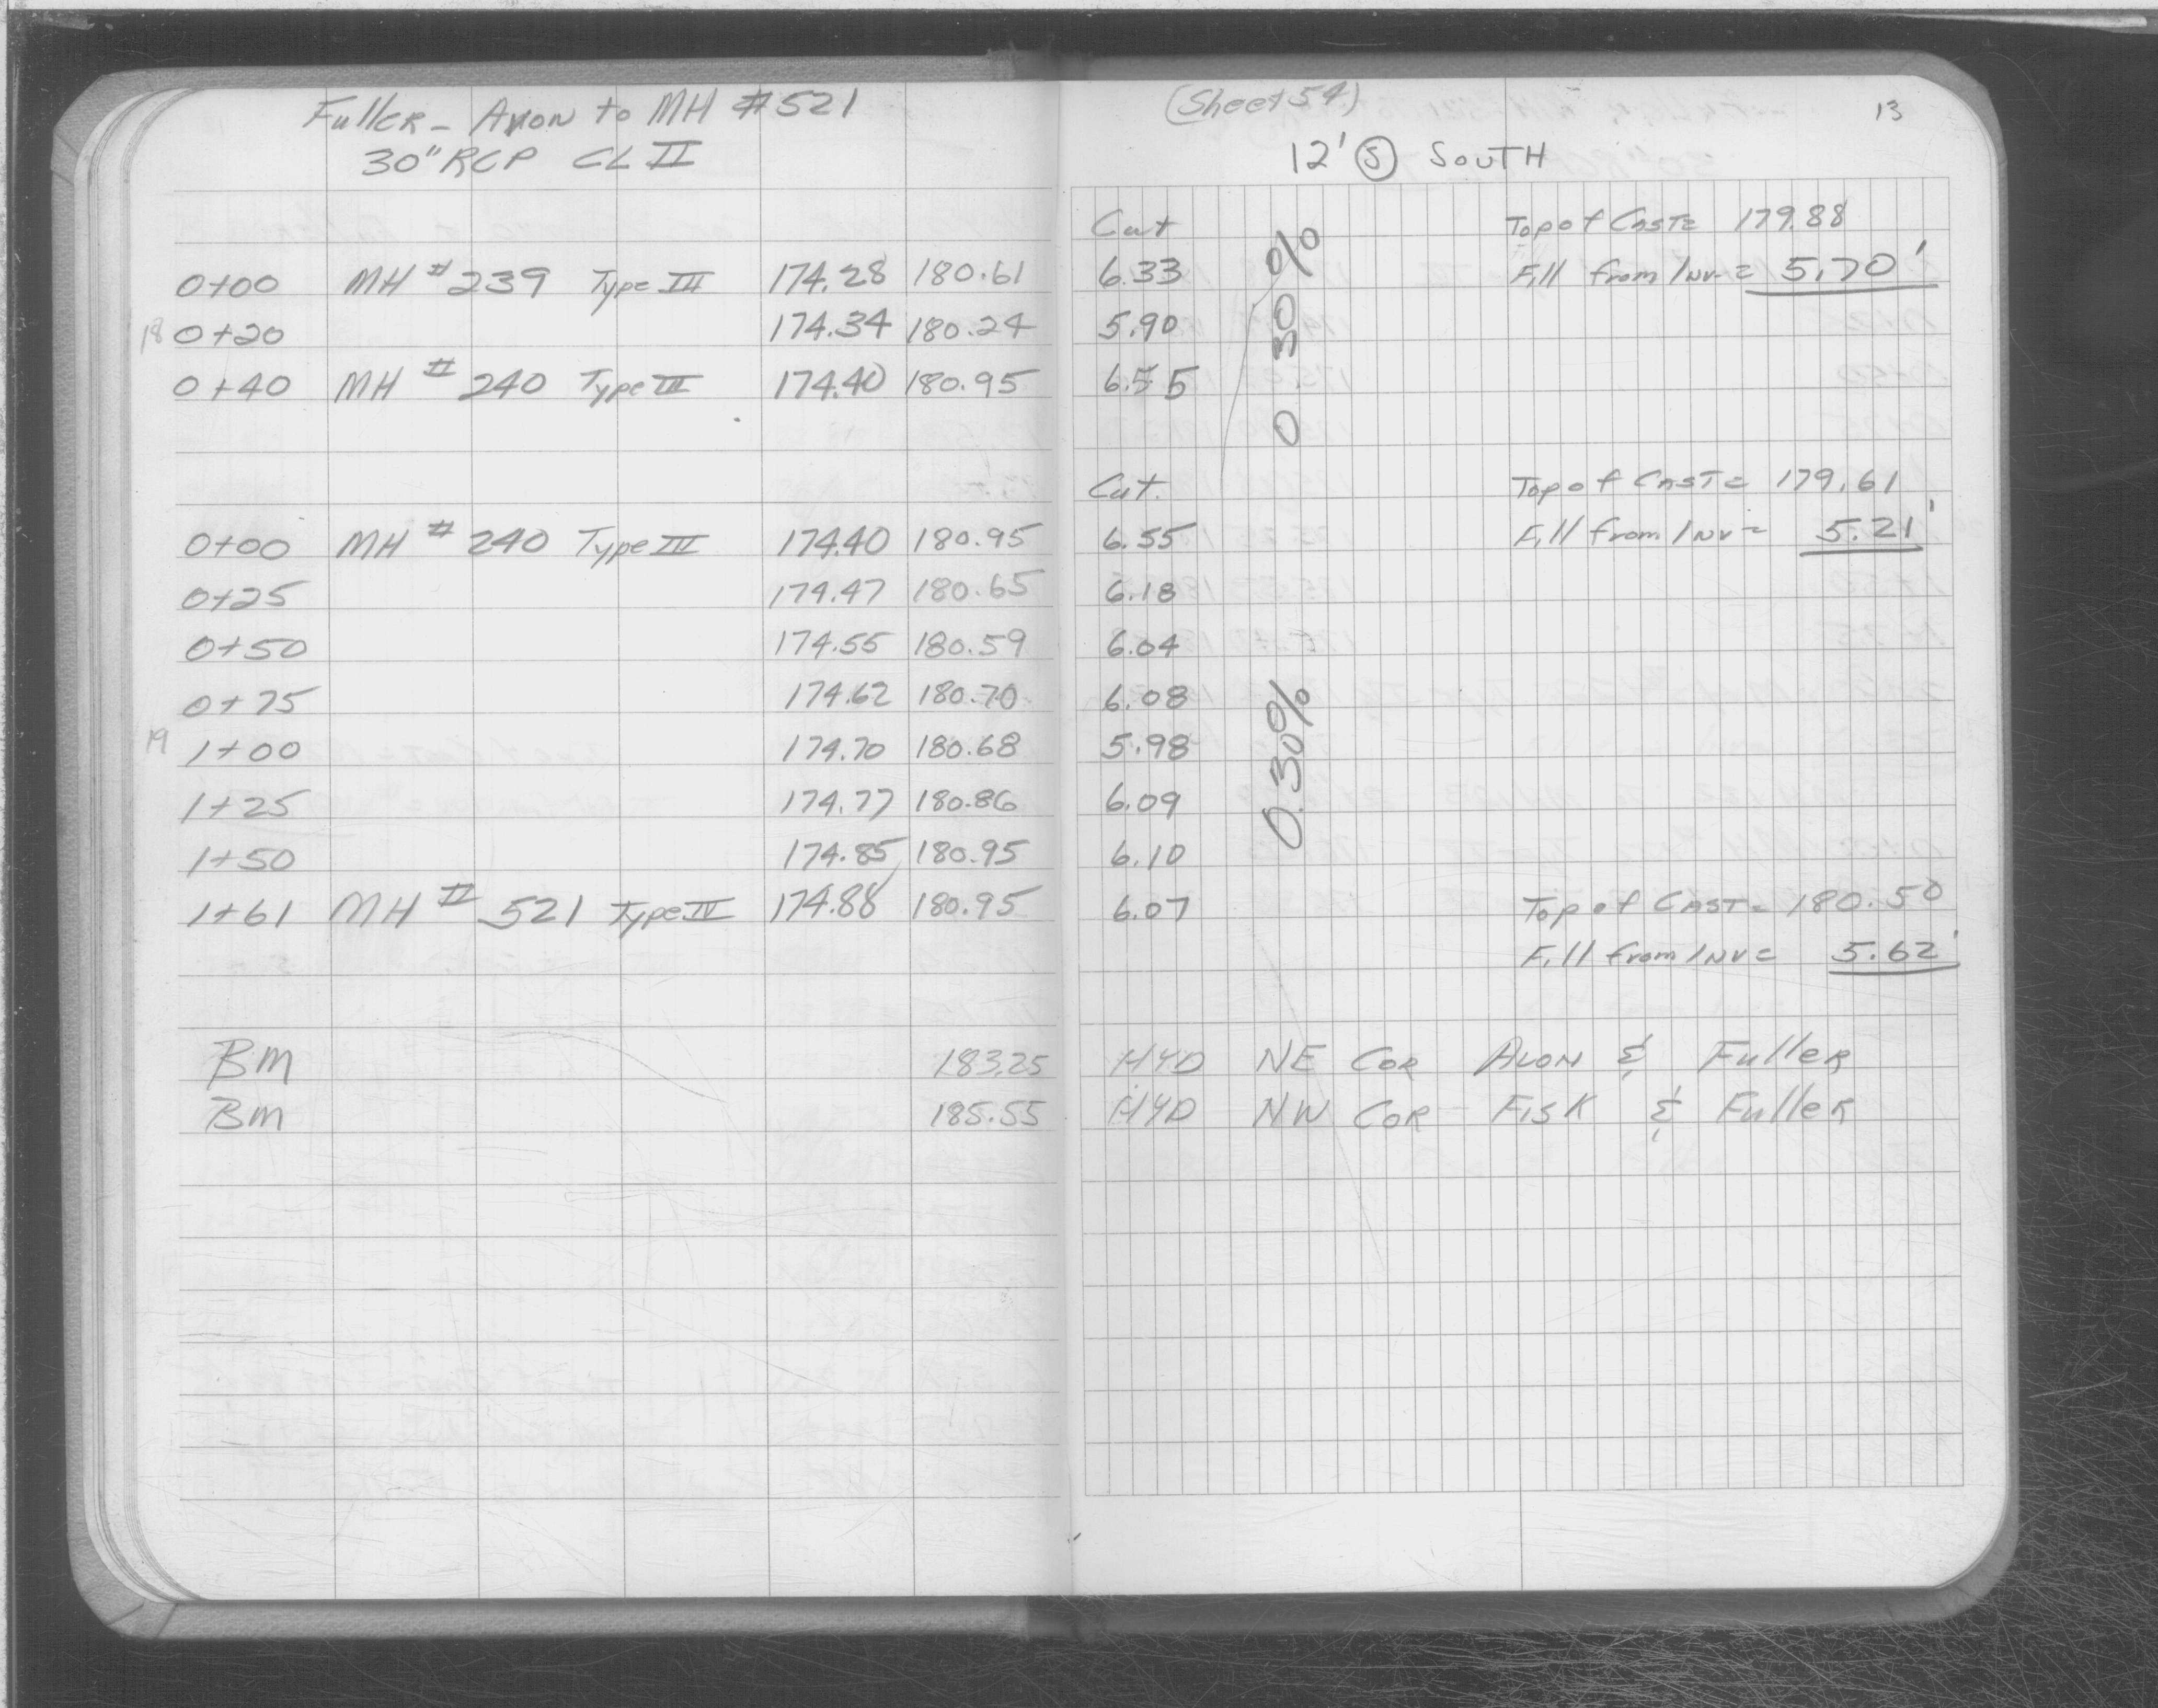 Fuller - Avon to MH #521
30" RCP CL II
(Sheet 54)
13
12' Ⓢ SOUTH
Cut
Top of Cast = 179.88
0+00 MH # 239 Type III 174.28 180.61 6.33 Fill from Inv = 5.70'
18 0+20 174.34 180.24 5.90
0+40 MH # 240 Type III 174.40 180.95 6.55
0.30%
Cut.
Top of Cast = 179.61
0+00 MH # 240 Type III 174.40 180.95 6.55 Fill from Inv = 5.21'
0+25 174.47 180.65 6.18
0+50 174.55 180.59 6.04
0+75 174.62 180.70 6.08
19 1+00 174.70 180.68 5.98
1+25 174.77 180.86 6.09
1+50 174.85 180.95 6.10
0.30%
1+61 MH # 521 Type IV 174.88 180.95 6.07 Top of Cast = 180.50
Fill from Inv = 5.62'
BM 183.25 HYD NE COR AVON & Fuller
BM 185.55 HYD NW COR FISK & Fuller